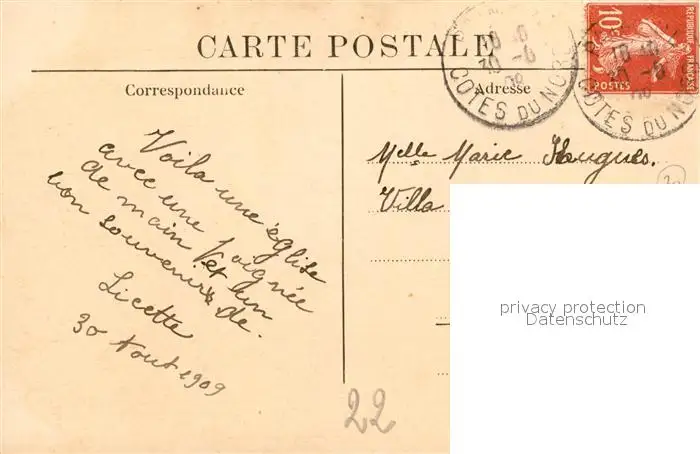 CARTE POSTALE
Correspondance
Adresse
10c
REPUBLIQUE FRANÇAISE
POSTES
COTES DU NORD
COTES DU NORD
Melle Marie Hugues.
Villa
Voila une église
avec une poignée
de main et un
bon souvenir de.
Licette
30 Aout 1909
22
privacy protection
Datenschutz